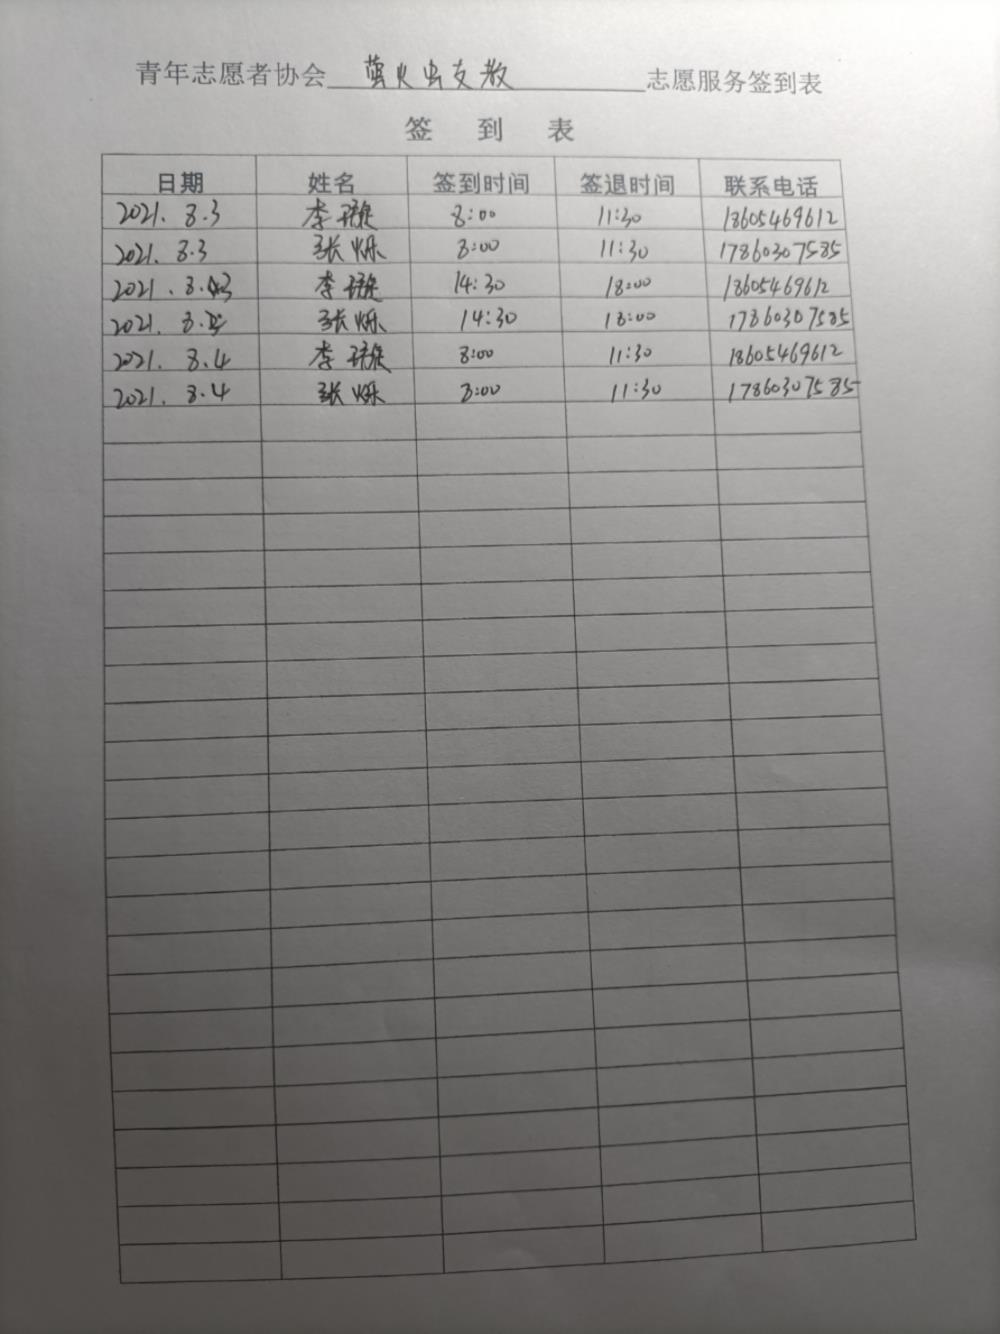 青年志愿者协会 萤火虫支教 志愿服务签到表
签 到 表
日期 姓名 签到时间 签退时间 联系电话
2021. 8.3 李璇 8:00 11:30 18605469612
2021. 8.3 张烁 8:00 11:30 17860307585
2021. 8.3 李璇 14:30 18:00 18605469612
2021. 8.3 张烁 14:30 18:00 17860307585
2021. 8.4 李璇 8:00 11:30 18605469612
2021. 8.4 张烁 8:00 11:30 17860307585